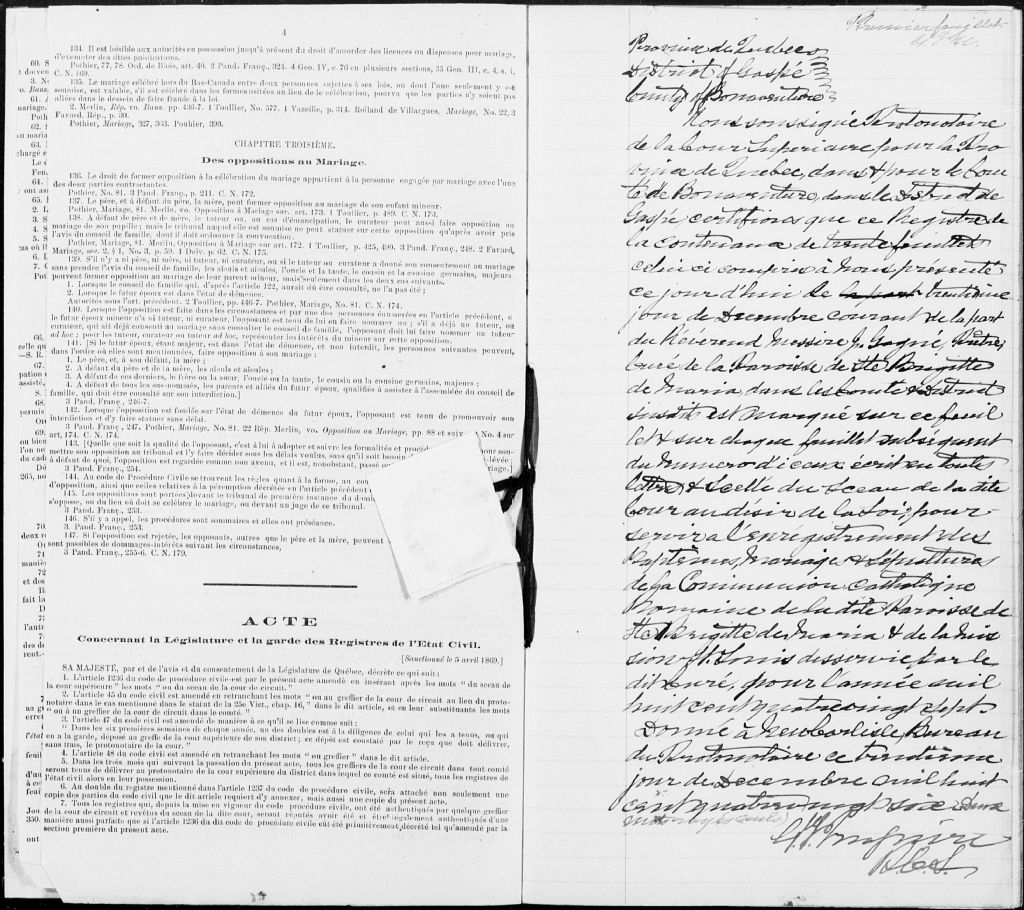 4
134. Il est loisible aux autorités en possession jusqu'à présent du droit d'accorder des licences ou dispenses pour mariage,
d'exempter des dites publications.
Pothier, 77, 78. Ord. de Blois, art. 40. 2 Pand. Franç., 324. 4 Geo. IV, c. 76 en plusieurs sections, 35 Geo. III, c. 4, s. 4,
C. N. 169.
135. Le mariage célébré hors du Bas-Canada entre deux personnes sujettes à ses lois, ou dont l'une seulement y est
soumise, est valable, s'il est célébré dans les formes usitées au lieu de la célébration, pourvu que les parties n'y soient pas
allées dans le dessein de faire fraude à la loi.
2. Merlin, Rép. vo. Bans, pp. 436-7. 1 Toullier, No. 577. 1 Vazeille, p. 314. Rolland de Villargues, Mariage, No. 22, 3
Favard. Rép., p. 30.
Pothier, Mariage, 327, 363. Pouhier, 390.
CHAPITRE TROISIÈME.
Des oppositions au Mariage.
136. Le droit de former opposition à la célébration du mariage appartient à la personne engagée par mariage avec l'une
des deux parties contractantes.
Pothier, No. 81. 3 Pand. Franç., p. 241. C. N. 172.
137. Le père, et à défaut du père, la mère, peut former opposition au mariage de son enfant mineur.
Pothier, Mariage, 81. Merlin, vo. Opposition à Mariage sur. art. 173. 1 Toullier, p. 489. C. N. 173.
138. A défaut de père et de mère, le tuteur, ou, au cas d'émancipation, le curateur peut aussi faire opposition au
mariage de son pupille; mais le tribunal auquel elle est soumise ne peut statuer sur cette opposition qu'après avoir pris
l'avis du conseil de famille, dont il doit ordonner la convocation.
Pothier, Mariage, 81. Merlin, Opposition à Mariage sur art. 172. 1 Toullier, p. 425, 490. 3 Pand. Franç., 248. 2 Favard,
Mariage, sec. 2, § 1, No. 3, p. 59. 1 Delv. p. 62. C. N. 175.
139. S'il n'y a ni père, ni mère, ni tuteur, ni curateur, ou si le tuteur ou curateur a donné son consentement au mariage
sans prendre l'avis du conseil de famille, les aïeuls et aïeules, l'oncle et la tante, le cousin et la cousine germains, majeurs,
peuvent former opposition au mariage de leur parent mineur, mais seulement dans les deux cas suivants.
1. Lorsque le conseil de famille qui, d'après l'article 122, aurait dû être consulté, ne l'a pas été;
2. Lorsque le futur époux est dans l'état de démence.
Autorités sous l'art. précédent. 2 Toullier, pp. 446-7. Pothier, Mariage, No. 81. C. N. 174.
140. Lorsque l'opposition est faite dans les circonstances et par une des personnes énumérées en l'article précédent, si
le futur époux mineur n'a ni tuteur, ni curateur, l'opposant est tenu de lui en faire nommer un; s'il a déjà un tuteur, ou
curateur, qui ait déjà consenti au mariage sans consulter le conseil de famille, l'opposant doit lui faire nommer un tuteur
ad hoc; pour les tuteur, curateur ou tuteur ad hoc, représenter les intérêts du mineur sur cette opposition.
141. [Si le futur époux, étant majeur, est dans l'état de démence, et non interdit, les personnes suivantes peuvent,
dans l'ordre où elles sont mentionnées, faire opposition à son mariage:
1. Le père, et, à son défaut, la mère;
2. A défaut du père et de la mère, les aïeuls et aïeules;
3. A défaut de ces derniers, le frère ou la sœur, l'oncle ou la tante, le cousin ou la cousine germains, majeurs;
4. A défaut de tous les sus-nommés, les parents et alliés du futur époux, qualifiés à assister à l'assemblée du conseil de
famille, qui doit être consulté sur son interdiction.]
3 Pand. Franç., 246-7.
142. Lorsque l'opposition est fondée sur l'état de démence du futur époux, l'opposant est tenu de promouvoir son
interdiction et d'y faire statuer sans délai.
3 Pand. Franç., 247. Pothier, Mariage. No. 81. 22 Rép. Merlin, vo. Opposition au Mariage, pp. 88 et suiv. No. 4 sur
art. 174. C. N. 174.
143. [Quelle que soit la qualité de l'opposant, c'est à lui à adopter et suivre les formalités et procéd
mettre son opposition au tribunal et l'y faire décider sous les délais voulus, sans qu'il soit besoin
à défaut de quoi, l'opposition est regardée comme non avenue, et il est, nonobstant, passé
3 Pand. Franç., 254.
144. Au code de Procédure Civile se trouvent les règles quant à la forme, au con
d'opposition, ainsi que celles relatives à la péremption décrétée en l'article précédent
145. Les oppositions sont portées devant le tribunal de première instance du domi
s'oppose, ou du lieu où doit se célébrer le mariage, ou devant un juge de ce tribunal.
3 Pand. Franç., 253.
146. S'il y a appel, les procédures sont sommaires et elles ont préséance.
3. Pand. Franç., 253.
147. Si l'opposition est rejetée, les opposants, autres que le père et la mère, peuvent
sont passibles de dommages-intérêts suivant les circonstances,
3 Pand. Franç., 255-6. C. N. 179.
ACTE
Concernant la Législature et la garde des Registres de l'Etat Civil.
[Sanctionné le 5 avril 1869.]
SA MAJESTÉ, par et de l'avis et du consentement de la Législature de Québec, décrète ce qui suit:
1. L'article 1236 du code de procédure civile est par le présent acte amendé en insérant après les mots "du sceau de
la cour supérieure" les mots "ou du sceau de la cour de circuit."
2. L'article 45 du code civil est amendé en retranchant les mots "ou au greffier de la cour de circuit au lieu du proto-
notaire dans le cas mentionné dans le statut de la 25e Vict., chap. 16," dans le dit article, et en leur substituant les mots
"ou à un greffier de la cour de circuit dans le comté."
3. L'article 47 du code civil est amendé de manière à ce qu'il se lise comme suit:
"Dans les six premières semaines de chaque année, un des doubles est à la diligence de celui qui les a tenus, ou qui
en a la garde, déposé au greffe de la cour supérieure de son district; ce dépôt est constaté par le reçu que doit délivrer,
sans frais, le protonotaire de la cour."
4. L'article 48 du code civil est amendé en retranchant les mots "ou greffier" dans le dit article.
5. Dans les trois mois qui suivront la passation du présent acte, tous les greffiers de la cour de circuit dans tout comté
seront tenus de délivrer au protonotaire de la cour supérieure du district dans lequel ce comté est situé, tous les registres de
l'état civil alors en leur possession.
6. Au double du registre mentionné dans l'article 1237 du code de procédure civile, sera attaché non seulement une
copie des parties du code civil que le dit article requiert d'y annexer, mais aussi une copie du présent acte.
7. Tous les registres qui, depuis la mise en vigueur du code procédure civile, ont été authentiqués par quelque greffier
de la cour de circuit et revêtus du sceau de la dite cour, seront réputés avoir été et être légalement authentiqués d'une
manière aussi parfaite que si l'article 1236 du dit code de procédure civile eût été primitivement décrété tel qu'amendé par la
section première du présent acte.
Premier feuillet
Province de Québec
District of Gaspé
County of Bonaventure
Nous soussigné Protonotaire
de la Cour Supérieure pour la Pro
vince de Québec, dans & pour le Com
té de Bonaventure, dans le District de
Gaspé certifions que ce Registre de
la contenance de trente feuillets
celui ci compris à nous présenté
ce jour d'hui le la part trentième
jour de Decembre courant de la part
du Révérend Messire J. Gagné, Prêtre,
Curé de la Paroisse de Ste Brigitte
de Maria, dans les Comté & District
susdit est marqué sur ce feuil
let & sur chaque feuillet subséquent
du numero d'iceux écrit en toutes
lettres & scellé du Sceau de la dite
Cour au desir de la Loi, pour
servir à l'enregistrement des
Baptêmes, Mariages & Sépultures
de la Communion Catholique
Romaine de la dite Paroisse de
Ste Brigitte de Maria & de la mis
sion St. Louis desservie par le
dit Curé, pour l'année mil
huit cent quatre vingt sept
Donné à New Carlisle Bureau
du Protonotaire ce trentième
jour de Decembre mil huit
cent quatre vingt six deux
P.C.S.